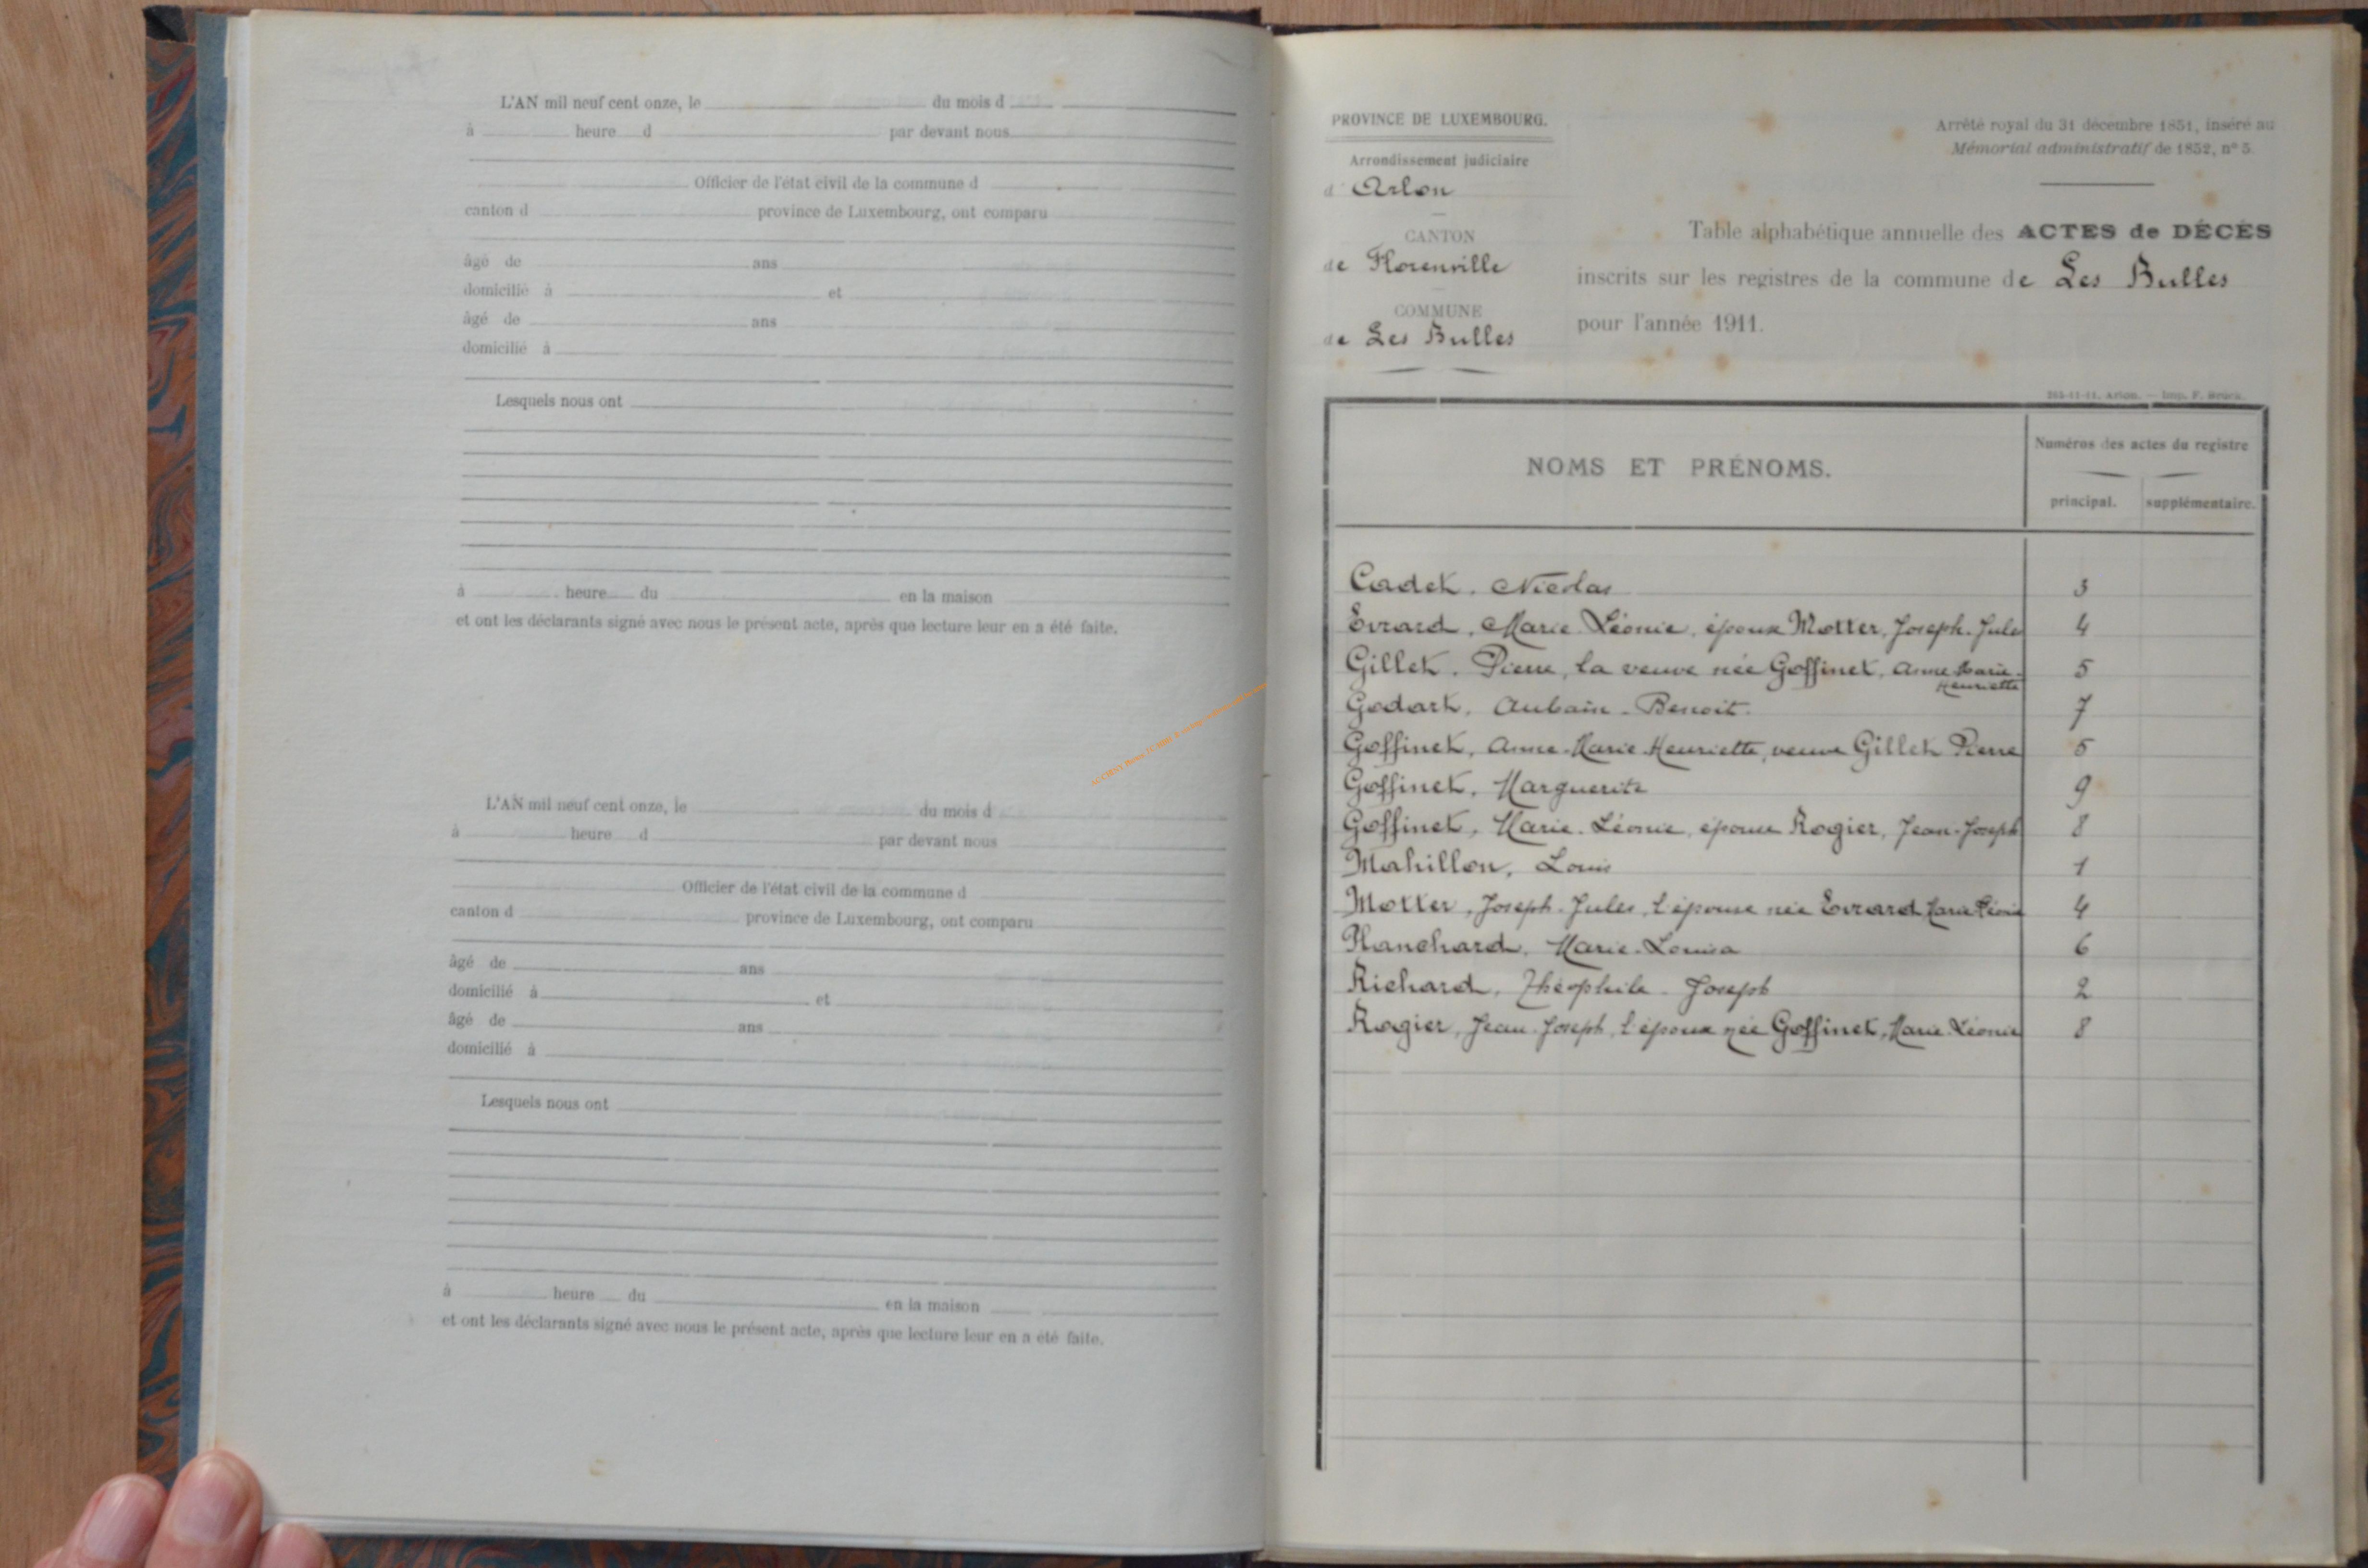 L'AN mil neuf cent onze, le du mois d
à heure d par devant nous
Officier de l'état civil de la commune d
canton d province de Luxembourg, ont comparu
âgé de ans
domicilié à et
âgé de ans
domicilié à
Lesquels nous ont
à heure du en la maison
et ont les déclarants signé avec nous le présent acte, après que lecture leur en a été faite.
L'AN mil neuf cent onze, le du mois d
à heure d par devant nous
Officier de l'état civil de la commune d
canton d province de Luxembourg, ont comparu
âgé de ans
domicilié à et
âgé de ans
domicilié à
Lesquels nous ont
à heure du en la maison
et ont les déclarants signé avec nous le présent acte, après que lecture leur en a été faite.
PROVINCE DE LUXEMBOURG.
Arrondissement judiciaire
d'Arlon
CANTON
de Florenville
COMMUNE
de Les Bulles
Arrêté royal du 31 décembre 1851, inséré au
Mémorial administratif de 1852, n° 5.
Table alphabétique annuelle des ACTES de DÉCÈS
inscrits sur les registres de la commune de Les Bulles
pour l'année 1911.
Arlon. — Imp. F. Brück.
NOMS ET PRÉNOMS.
Numéros des actes du registre
principal. supplémentaire.
Cadet, Nicolas 3
Evrard, Marie-Léonie, épouse Motter, Joseph-Jules 4
Gillet, Pierre, la veuve née Goffinet, Anne-Marie- 5
Henriette
Godart, Aubain-Benoit. 7
Goffinet, Anne-Marie-Henriette, veuve Gillet Pierre 5
Goffinet, Marguerite 9
Goffinet, Marie-Léonie, épouse Rogier, Jean-Joseph 8
Mahillon, Louis 1
Motter, Joseph-Jules, l'épouse née Evrard Marie-Léonie 4
Planchard, Marie-Louisa 6
Richard, Théophile-Joseph 2
Rogier, Jean-Joseph, l'épouse née Goffinet, Marie-Léonie 8